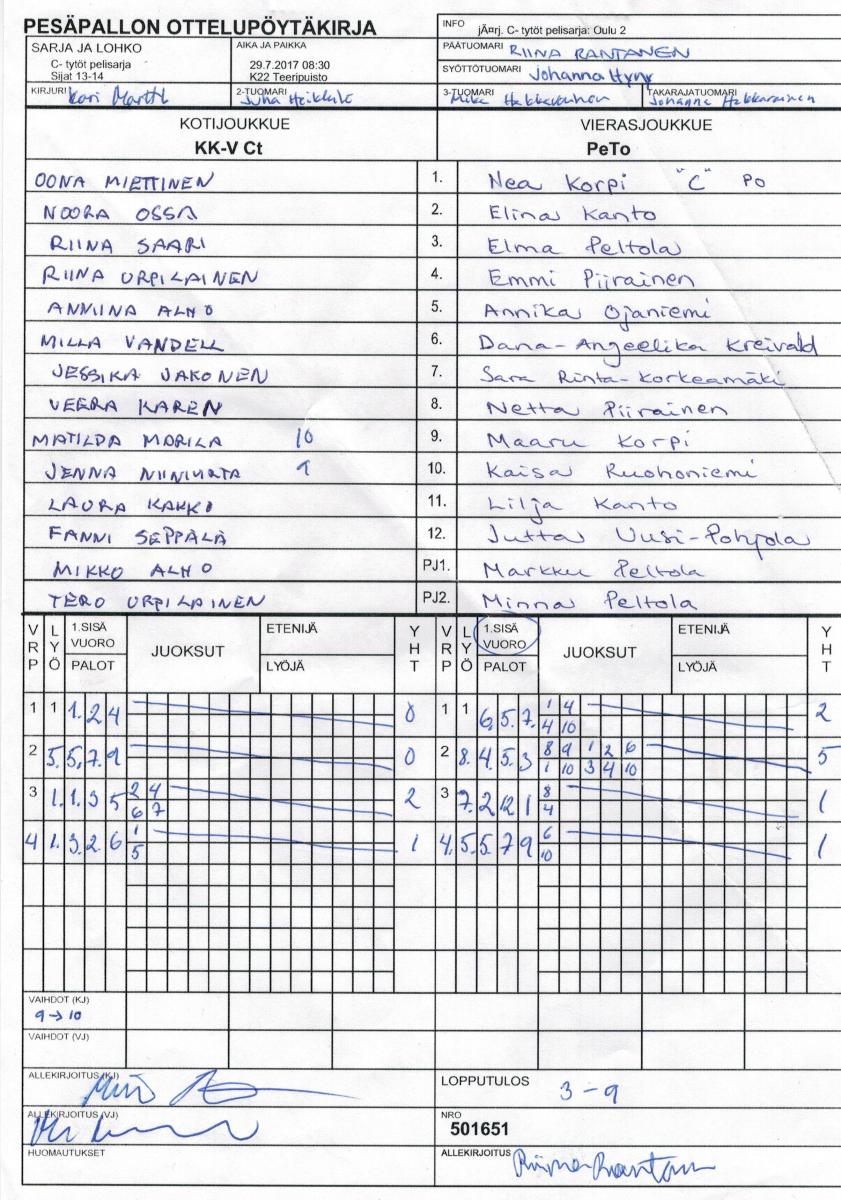 PESÄPALLON OTTELUPÖYTÄKIRJA
INFO jÃ¤rj. C- tytöt pelisarja: Oulu 2
SARJA JA LOHKO
C- tytöt pelisarja
Sijat 13-14
AIKA JA PAIKKA
29.7.2017 08:30
K22 Teeripuisto
PÄÄTUOMARI RIINA RANTANEN
SYÖTTÖTUOMARI Johanna
KIRJURI Kari
2-TUOMARI Juha Heikkilä
3-TUOMARI Mika
TAKARAJATUOMARI Johanna Hakkarainen
KOTIJOUKKUE
KK-V Ct
VIERASJOUKKUE
PeTo
OONA MIETTINEN 1. Nea Korpi "C" PO
NOORA OSSA 2. Elina Kanto
RIINA SAARI 3. Elma Peltola
RIINA URPILAINEN 4. Emmi Piirainen
ANNIINA ALHO 5. Annika Ojaniemi
MILLA VANDELL 6. Dana-Angeelika Kreivald
JESSIKA JAKONEN 7. Sara Rinta-Korkeamäki
VEERA KAREN 8. Netta Piirainen
MATILDA MORILA 10 9. Maaru Korpi
JENNA 9 10. Kaisa Ruohoniemi
LAURA KAKKO 11. Lilja Kanto
FANNI SEPPÄLÄ 12. Jutta Uusi-Pohjola
MIKKO ALHO PJ1. Markku Peltola
TERO URPILAINEN PJ2. Minna Peltola
VRP LYÖ 1.SISÄ VUORO PALOT JUOKSUT ETENIJÄ LYÖJÄ YHT VRP LYÖ 1.SISÄ VUORO PALOT JUOKSUT ETENIJÄ LYÖJÄ YHT
1 1 1. 2 4 0 1 1 6. 5. 7. 1 4 2
4 10
2 5. 5, 7. 9 0 2 8. 4. 5. 3 8 9 1 2 6 5
1 10 3 4 10
3 1. 1. 3 5 2 4 2 3 7. 2 12 1 8 1
6 7 4
4 1. 3. 2. 6 1 1 4. 5. 5 7 9 6 1
5 10
VAIHDOT (KJ)
9 → 10
VAIHDOT (VJ)
ALLEKIRJOITUS (KJ)
LOPPUTULOS 3 - 9
ALLEKIRJOITUS (VJ)
NRO
501651
HUOMAUTUKSET
ALLEKIRJOITUS Riina Rantanen